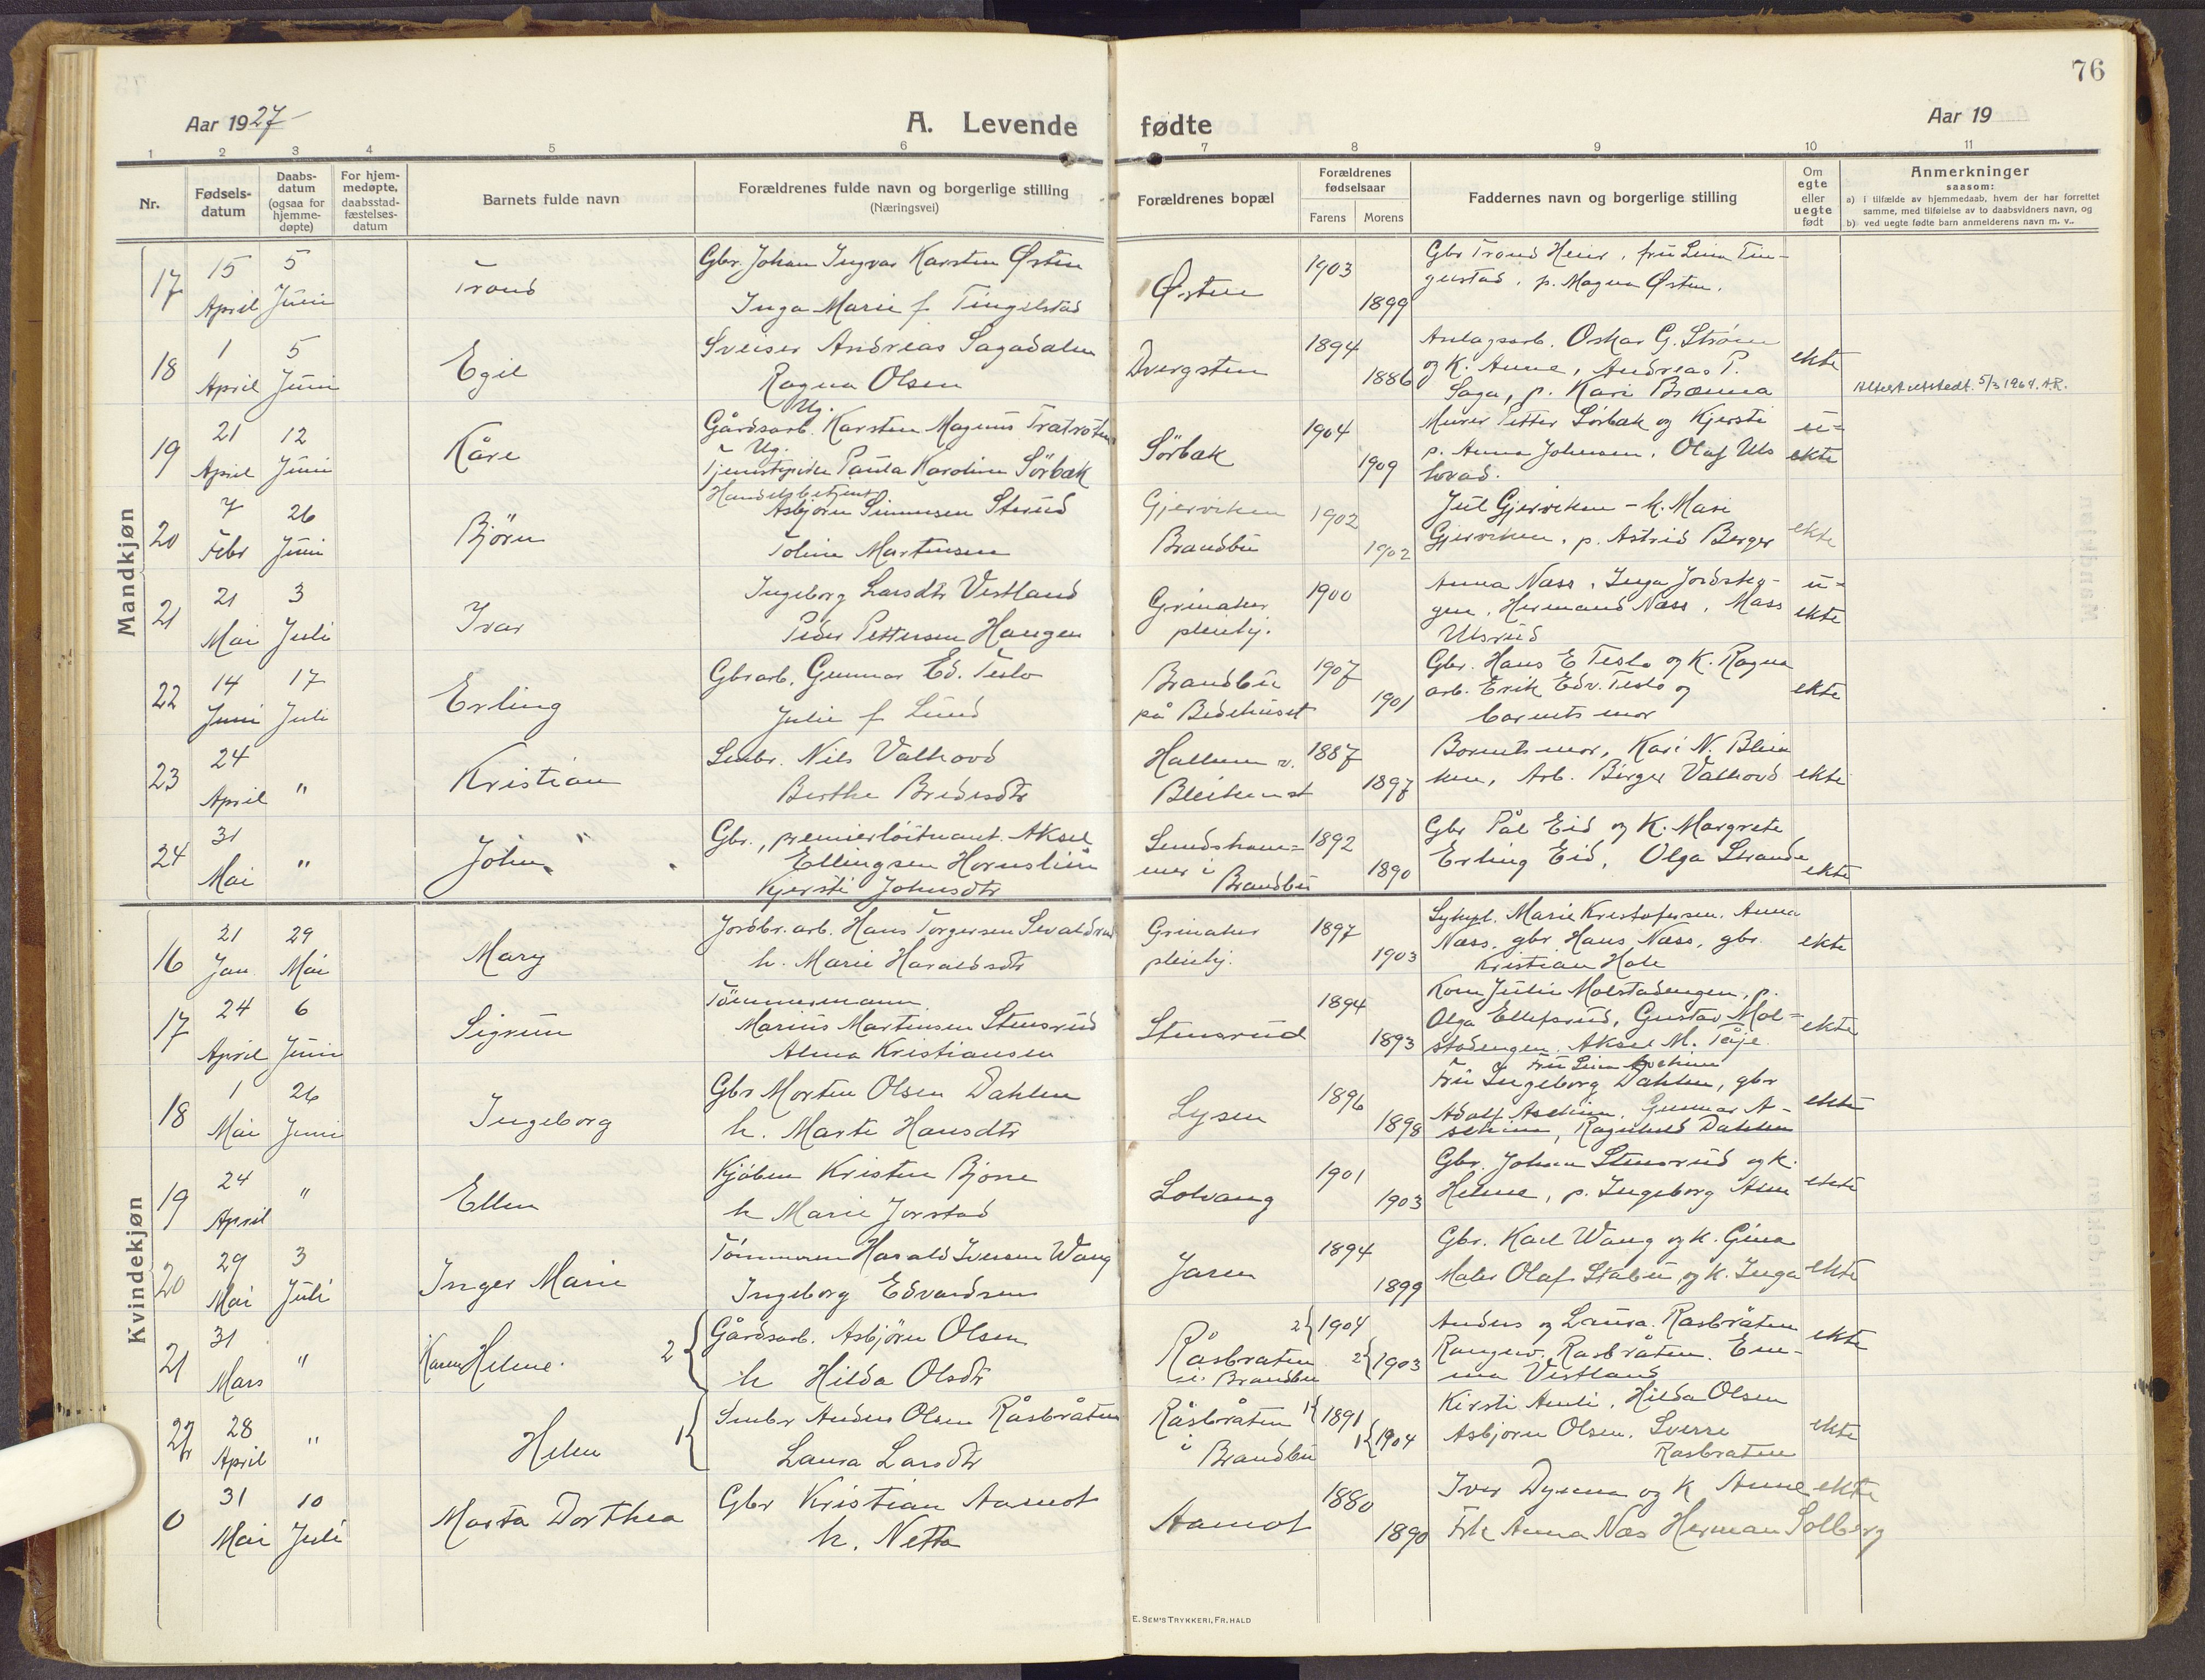 76
Aar 1927
A. Levende fødte
Aar 19
1 2 3 4 5 6 7 8 9 10 11
Nr.
Fødsels-
datum
Daabs-
datum
(ogsaa for
hjemme-
døpte)
For hjem-
medøpte,
daabsstad-
fæstelses-
datum
Barnets fulde navn
Forældrenes fulde navn og borgerlige stilling
(Næringsvei)
Forældrenes bopæl
Forældrenes
fødselsaar
Farens Morens
Faddernes navn og borgerlige stilling
Om
egte
eller
uegte
født
Anmerkninger
saasom:
a) i tilfælde av hjemmedaab, hvem der har forrettet
samme, med tilføielse av to daabsvidners navn, og
b) ved uegte fødte barn anmelderens navn m. v..
Mandkjøn
17
15 April
5 Juni
Trond
Gbr. Johan Ingvar Karsten Østen
Inga Marie f. Tingelstad
Østen
1903
1899
Gbr Trond Heier, fru Lina Tin-
gerstad, p. Magna Østen.
18
1 April
5 Juni
Egil
Sveiser Andreas Sagadalen
Ragna Olsen
Dvergsten
1894
1886
Anlagsarb. Oskar G. Strøm
og K. Anne, Andreas P.
Saga, p. Kari Brænna
ekte
5/3 1964. A.R.
19
21 April
12 Juni
Kåre
Ug.
Gårdsarb. Karsten Magnus
Ug.
Tjenestepike Paula Karoline Sörbak
Sörbak
1904
1909
Murer Petter Sörbak og Kjersti
p. Anna Johnsen, Olaf Uls
hovad.
u-
ekte
20
7 Febr
26 Juni
Björn
Handelsbetjent
Asbjörn Simensen Sterud
Toline Martinsen
Gjerviken
Brandbu
1902
1902
Jul Gjerviken - k. Mari
Gjerviken, p. Astrid Berger
ekte
21
21 Mai
3 Juli
Ivar
Ingeborg Larsdtr Vestland
Peder Pettersen Haugen
Grinaker
pleiehj.
1900
Anna Næss, Inga Jordste-
gen, Hermand Næss, Mass
Ulsrud
u-
ekte
22
14 Juni
17 Juli
Erling
Gbrarb. Gunnar Ed. Teslo
Julie f. Lund
Brandbu
på Bedehuset
1907
1901
Gbr. Hans E Teslo og K. Ragna
arb. Erik Edv. Teslo og
barnets mor
ekte
23
24 April
"
Kristian
Smbr. Nils Valhovd
Berthe Bredesdtr
Hallum v.
1887
1897
Barnets mor, Kari N. Bleik
ken, Arb. Birger Valhovd
ekte
24
31 Mai
"
John
Gbr., premierlöitnant Aksel
Ellingsen Hornslien
Kjersti Johnsdtr
Lundsham=
mer i
Brandbu
1892
1890
Gbr Pål Eid og K. Margrete
Erling Eid, Olga Strande
ekte
Kvindekjøn
16
21 Jan
29 Mai
Mary
Jordbr. arb. Hans Torgersen
h. Marie Haraldsdtr
Grinaker
pleiehj.
1897
1903
Sykepl. Marie Kristofersen, Anna
Næss, gbr Hans Næss, gbr.
Kristian Hole
ekte
17
24 April
6 Juni
Sigrun
Tömmermann
Marius Martinsen Stensrud
Alma Kristiansen
Stensrud
1894
1893
Kone Julie Molstadengen, p.
Olga Ellefsrud, Gustav Mol=
stadengen. Aksel M. Teije
ekte
18
1 Mai
26 Juni
Ingeborg
Gbr Morten Olsen Dahlen
h. Marte Hansdtr
Lysen
1896
1898
Fru Lina Aschim
Fru Ingeborg Dahlen, gbr
Adolf Aschim, Gunnar A-
schim, Ragnhild Dahlen
ekte
19
24 April
"
Ellen
Kjöbm Kristen Bjone
h Marie Jorstad
Solvang
1901
1903
Gbr. Johan Stensrud og k.
Helene, p. Ingeborg Alm
ekte
20
29 Mai
3 Juli
Inger Marie
Tömmerm Harald Iversen Wang
Ingeborg Edvardsen
Jaren
1894
1899
Gbr. Karl Wang og K. Gina
Maler Olaf Stabu og K. Inga
ekte
21
31 Mars
"
Karen Helene.
2
Gårdsarb. Asbjörn Olsen
h Hilda Olsdtr
Råsbraten
i Brandbu
2 1904
2 1903
Anders og Laura Rasbråten
Rangnv. Rasbråten. Em-
ma Vestland
ekte
22
28 April
"
Helen
1
Smbr Anders Olsen Råsbråten
Laura Larsdtr
Råsbråten
i
Brandbu
1 1891
1 1904
Kirsti Amli, Hilda Olsen
Asbjorn Olsen, Sverre
Rasbraten
ekte
0
31 Mai
10 Juli
Marta Dorthea
Gbr Kristian Aamot
h. Netta
Aamot
1880
1890
Iver Dynna og K Anne
Frk Anna Næs Herman Solberg
ekte
E. SEM'S TRYKKERI, FR. HALD